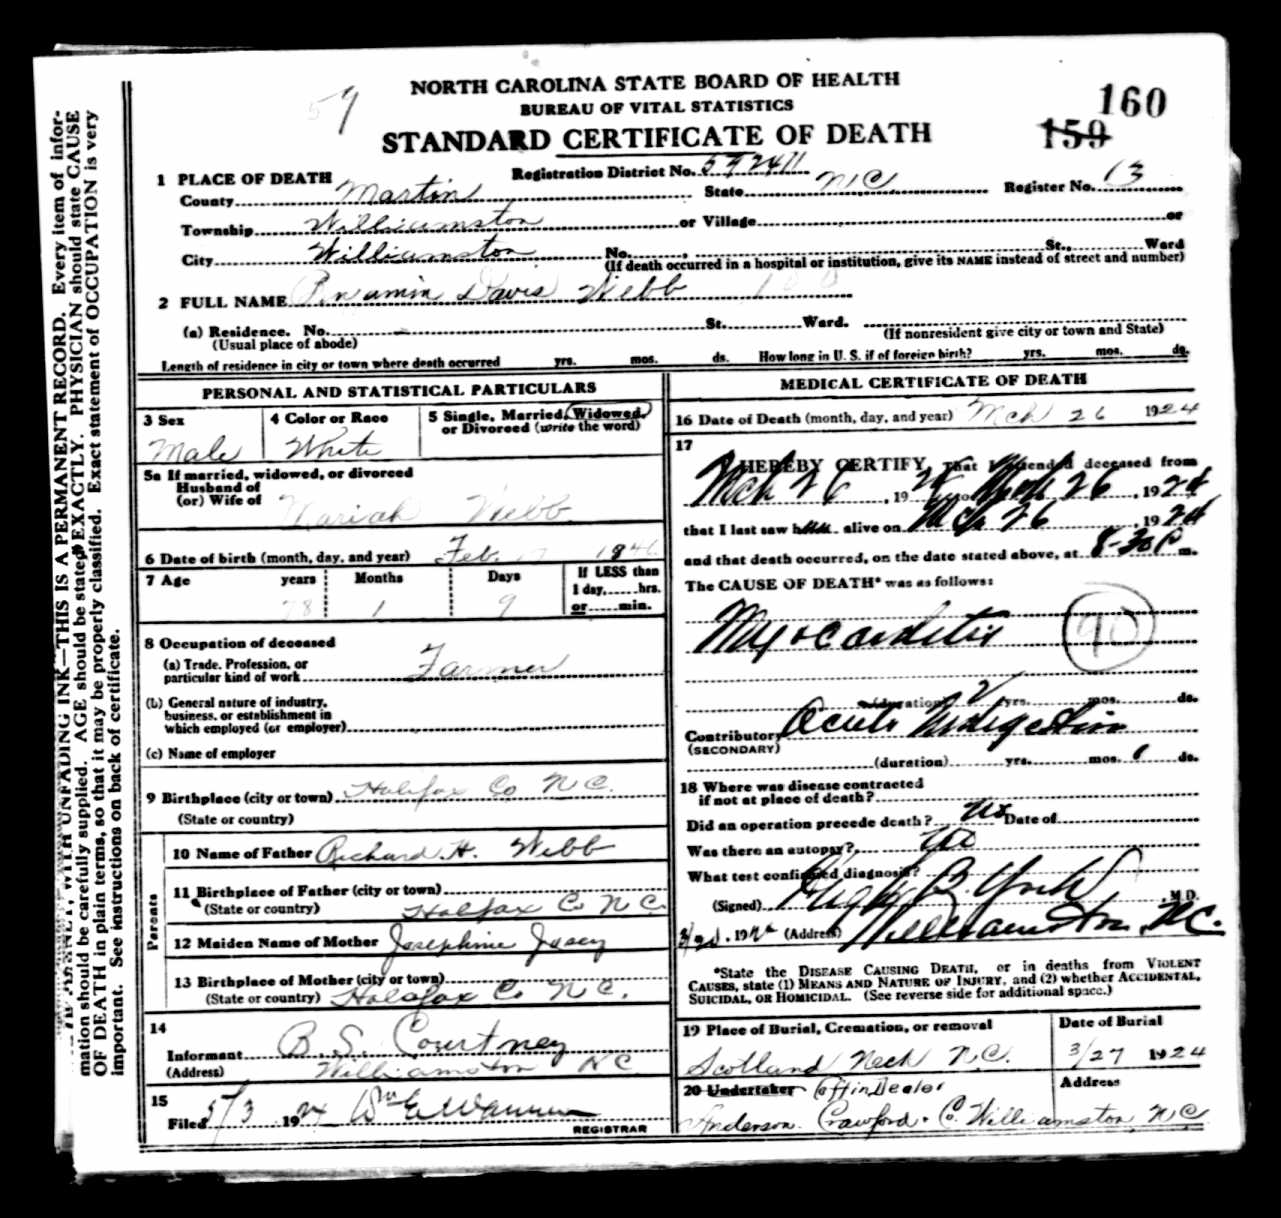 NORTH CAROLINA STATE BOARD OF HEALTH
BUREAU OF VITAL STATISTICS
STANDARD CERTIFICATE OF DEATH
160
159
1 PLACE OF DEATH Registration District No. 592411
County Martin State NC Register No. 13
Township Williamston or Village or
City Williamston No. , St., Ward
(If death occurred in a hospital or institution, give its NAME instead of street and number)
2 FULL NAME Benjamin Davis Webb
(a) Residence. No. St. Ward.
(Usual place of abode) (If nonresident give city or town and State)
Length of residence in city or town where death occurred yrs. mos. ds. How long in U. S. if of foreign birth? yrs. mos. ds.
PERSONAL AND STATISTICAL PARTICULARS
3 Sex 4 Color or Race 5 Single, Married, Widowed,
or Divorced (write the word)
Male White
5a If married, widowed, or divorced
Husband of
(or) Wife of Mariah Webb
6 Date of birth (month, day, and year) Feb. 1846
7 Age years Months Days If LESS than
1 day, hrs.
78 1 9 or min.
8 Occupation of deceased
(a) Trade, Profession, or
particular kind of work Farmer
(b) General nature of industry,
business, or establishment in
which employed (or employer)
(c) Name of employer
9 Birthplace (city or town) Halifax Co N.C.
(State or country)
Parents
10 Name of Father Richard H. Webb
11 Birthplace of Father (city or town)
(State or country) Halifax Co N C
12 Maiden Name of Mother Josephine Jusey
13 Birthplace of Mother (city or town)
(State or country) Halafax Co N.C.
14
Informant B. S. Courtney
(Address) Williamston NC
15
Filed 5/3 1924
REGISTRAR
MEDICAL CERTIFICATE OF DEATH
16 Date of Death (month, day, and year) Mch 26 1924
17
I HEREBY CERTIFY, That I attended deceased from
Mch 26, 1924, to Mch 26, 1924
that I last saw him alive on Mch 26, 1924
and that death occurred, on the date stated above, at 8-30 P m.
The CAUSE OF DEATH* was as follows:
Myocarditis 90
(duration) 2 yrs. mos. ds.
Contributory Acute Indigestion
(SECONDARY)
(duration) yrs. mos. ds.
18 Where was disease contracted
if not at place of death?
Did an operation precede death? no Date of
Was there an autopsy? no
What test confirmed diagnosis?
(Signed) Hugh B York, M.D.
, 192 (Address) Williamston, N.C.
*State the DISEASE CAUSING DEATH, or in deaths from VIOLENT
CAUSES, state (1) MEANS AND NATURE OF INJURY, and (2) whether ACCIDENTAL,
SUICIDAL, OR HOMICIDAL. (See reverse side for additional space.)
19 Place of Burial, Cremation, or removal Date of Burial
Scotland Neck N.C. 3/27 1924
20 Undertaker Coffin Dealer Address
Anderson Crawford Co. Williamston, N C
WITH UNFADING INK—THIS IS A PERMANENT RECORD. Every item of infor-
mation should be carefully supplied. AGE should be stated EXACTLY. PHYSICIAN should state CAUSE
OF DEATH in plain terms, so that it may be properly classified. Exact statement of OCCUPATION is very
important. See instructions on back of certificate.